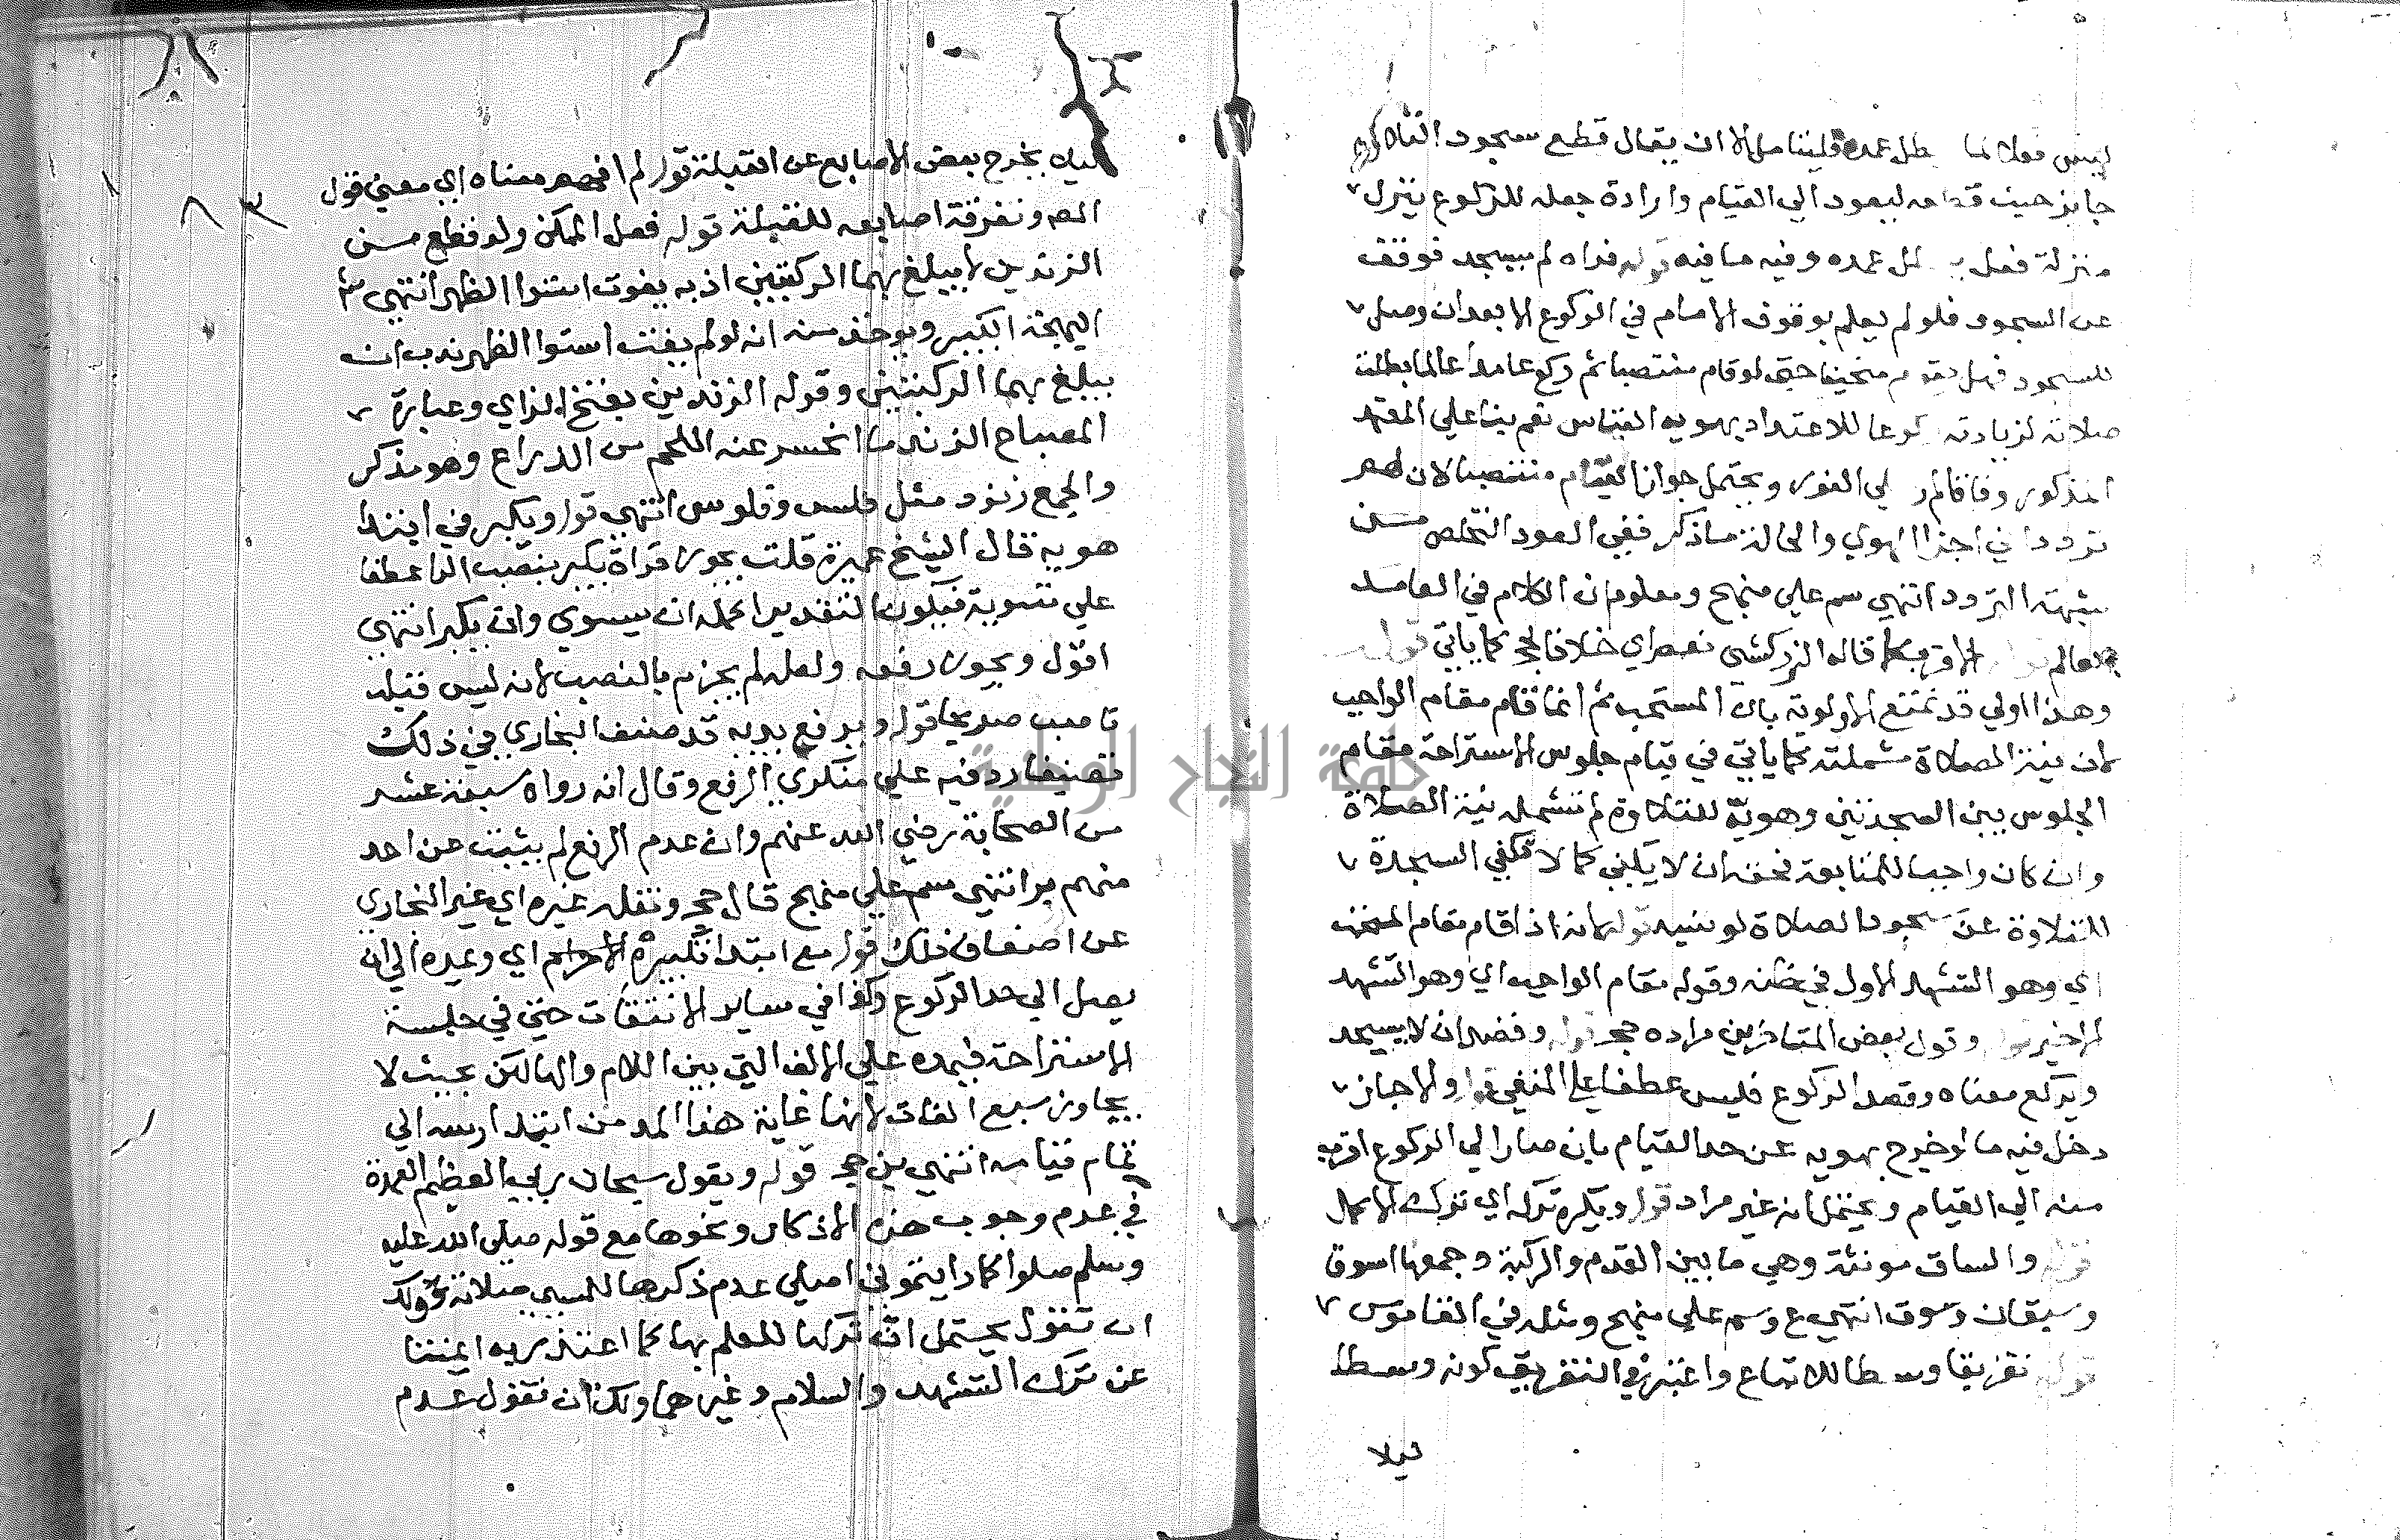 ليس فعلا يبطل عمده فليتامل الا ان يقال قطع سجود التلاوة
جايز حيث قطعه ليعود الي القيام وارادة جعله للركوع ينزل
منزلة فعل يبطل عمده وفيه ما فيه قوله فراه لم يسجد فوقف
عن السجود فلو لم يعلم بوقوف الامام في الركوع الا بعد ان وصل
للسجود فهل يقوم منحنيا حتي لو قام منتصبا ثم ركع عامدا عالما بطلت
صلاته لزيادته ركوعا للاعتداد بهويه القياس نعم بنا علي المعتمد
المذكور وفاقا لم ر علي الفور ويحتمل جواز القيام منتصبا لان لهم
ترددا في اجزا الهوي والحالة ماذكر ففي العود التخلص من
شبهة التردد انتهي سم علي منهج ومعلوم ان الكلام في العامد
العالم قوله الاقرب كما قاله الزركشي نعم راي خلافا لحج كما ياتي قوله
وهذا اولي قد تمنع الاولوية بان المستحب ثم انما قام مقام الواجب
لان نية الصلاة مشملته كما ياتي في قيام جلوس الاستراحة مقام
الجلوس بين السجدتين وهويه للتلاوة لم تشمله نية الصلاة
وان كان واجبا للمتابعة فحقه ان لا يكفي كما لا تكفي السجدة
للتلاوة عن سجود الصلاة لو نسيه قوله لانه اذا قام مقام المستحب
اي وهو التشهد الاول في ظنه وقوله مقام الواجب اي وهو التشهد
الاخير قوله وقول بعض المتاخرين مراده حجر قوله وقصد ان لا يسجد
ويركع معناه وقصد الركوع فليس عطفا علي المنفي قوله والا جاز
دخل فيه ما لو خرج بهويه عن حد القيام بان صار الي الركوع اقرب
منه الي القيام ويحتمل انه غير مراد قوله ويكره تركه اي ترك الاكمل
قوله والساق مونثة وهي ما بين القدم والركبة وجمعها اسوق
وسيقان وسوق انتهي ع وسم علي منهج ومثله في القاموس
قوله تفريقا وسطا للاتباع واعتبر في التفريق كونه وسطا
ليلا
ليلا يخرج بعض الاصابع عن القبلة قوله لم افهم معناه اي معني قول
المص وتفرقة اصابعه للقبلة قوله فعل الممكن ولو قطع من
الزندين لا يبلغ بهما الركبتين اذ به يفوت استوا الظهر انتهي
البهجة الكبير ويوخذ منه انه لو لم يفت استوا الظهر ندب ان
يبلغ بهما الركبتين وقوله الزندين بفتح الزاي وعبارة
المصباح الزند ما انحسر عنه اللحم من الذراع وهو مذكر
والجمع زنود مثل فلس وفلوس انتهي قوله ويكبر في ابتدا
هويه قال الشيخ عميرة قلت يجوز قراة يكبر بنصب الرا عطفا
علي تسوية فيكون التقدير اكمله ان يسوي وان يكبر انتهي
اقول ويجوز رفعه ولعله لم يجزم بالنصب لانه ليس قبله
ناصب صريحا قوله ويرفع يديه قد صنف البخاري في ذلك
تصنيفا رد فيه علي منكري الرفع وقال انه رواه سبعة عشر
من الصحابة رضي الله عنهم وان عدم الرفع لم يثبت عن احد
منهم مر انتهي سم علي منهج قال حجر ونقله غيره اي غير البخاري
عن اضعاف ذلك قوله مع ابتدا تكبيرة الاحرام اي ويمده الي ان
يصل الي حد الركوع وكذا في ساير الانتقالات حتي في جلسة
الاستراحة فيمده علي الالف التي بين اللام والها لكن بحيث لا
يجاوز سبع الفات لانها غاية هذا المد من ابتدا راسه الي
تمام قيامه انتهي من حج قوله ويقول سبحان ربي العظيم العمدة
في عدم وجوب هذه الاذكار ونحوها مع قوله صلي الله عليه
وسلم صلوا كما رايتموني اصلي عدم ذكرها للمسي صلاته ولك
ان تقول يحتمل انه تركها للعلم بها كما اعتذر به ايمتنا
عن ترك التشهد والسلام وغيرهما ولك ان تقول عدم
جامعة النجاح الوطنية